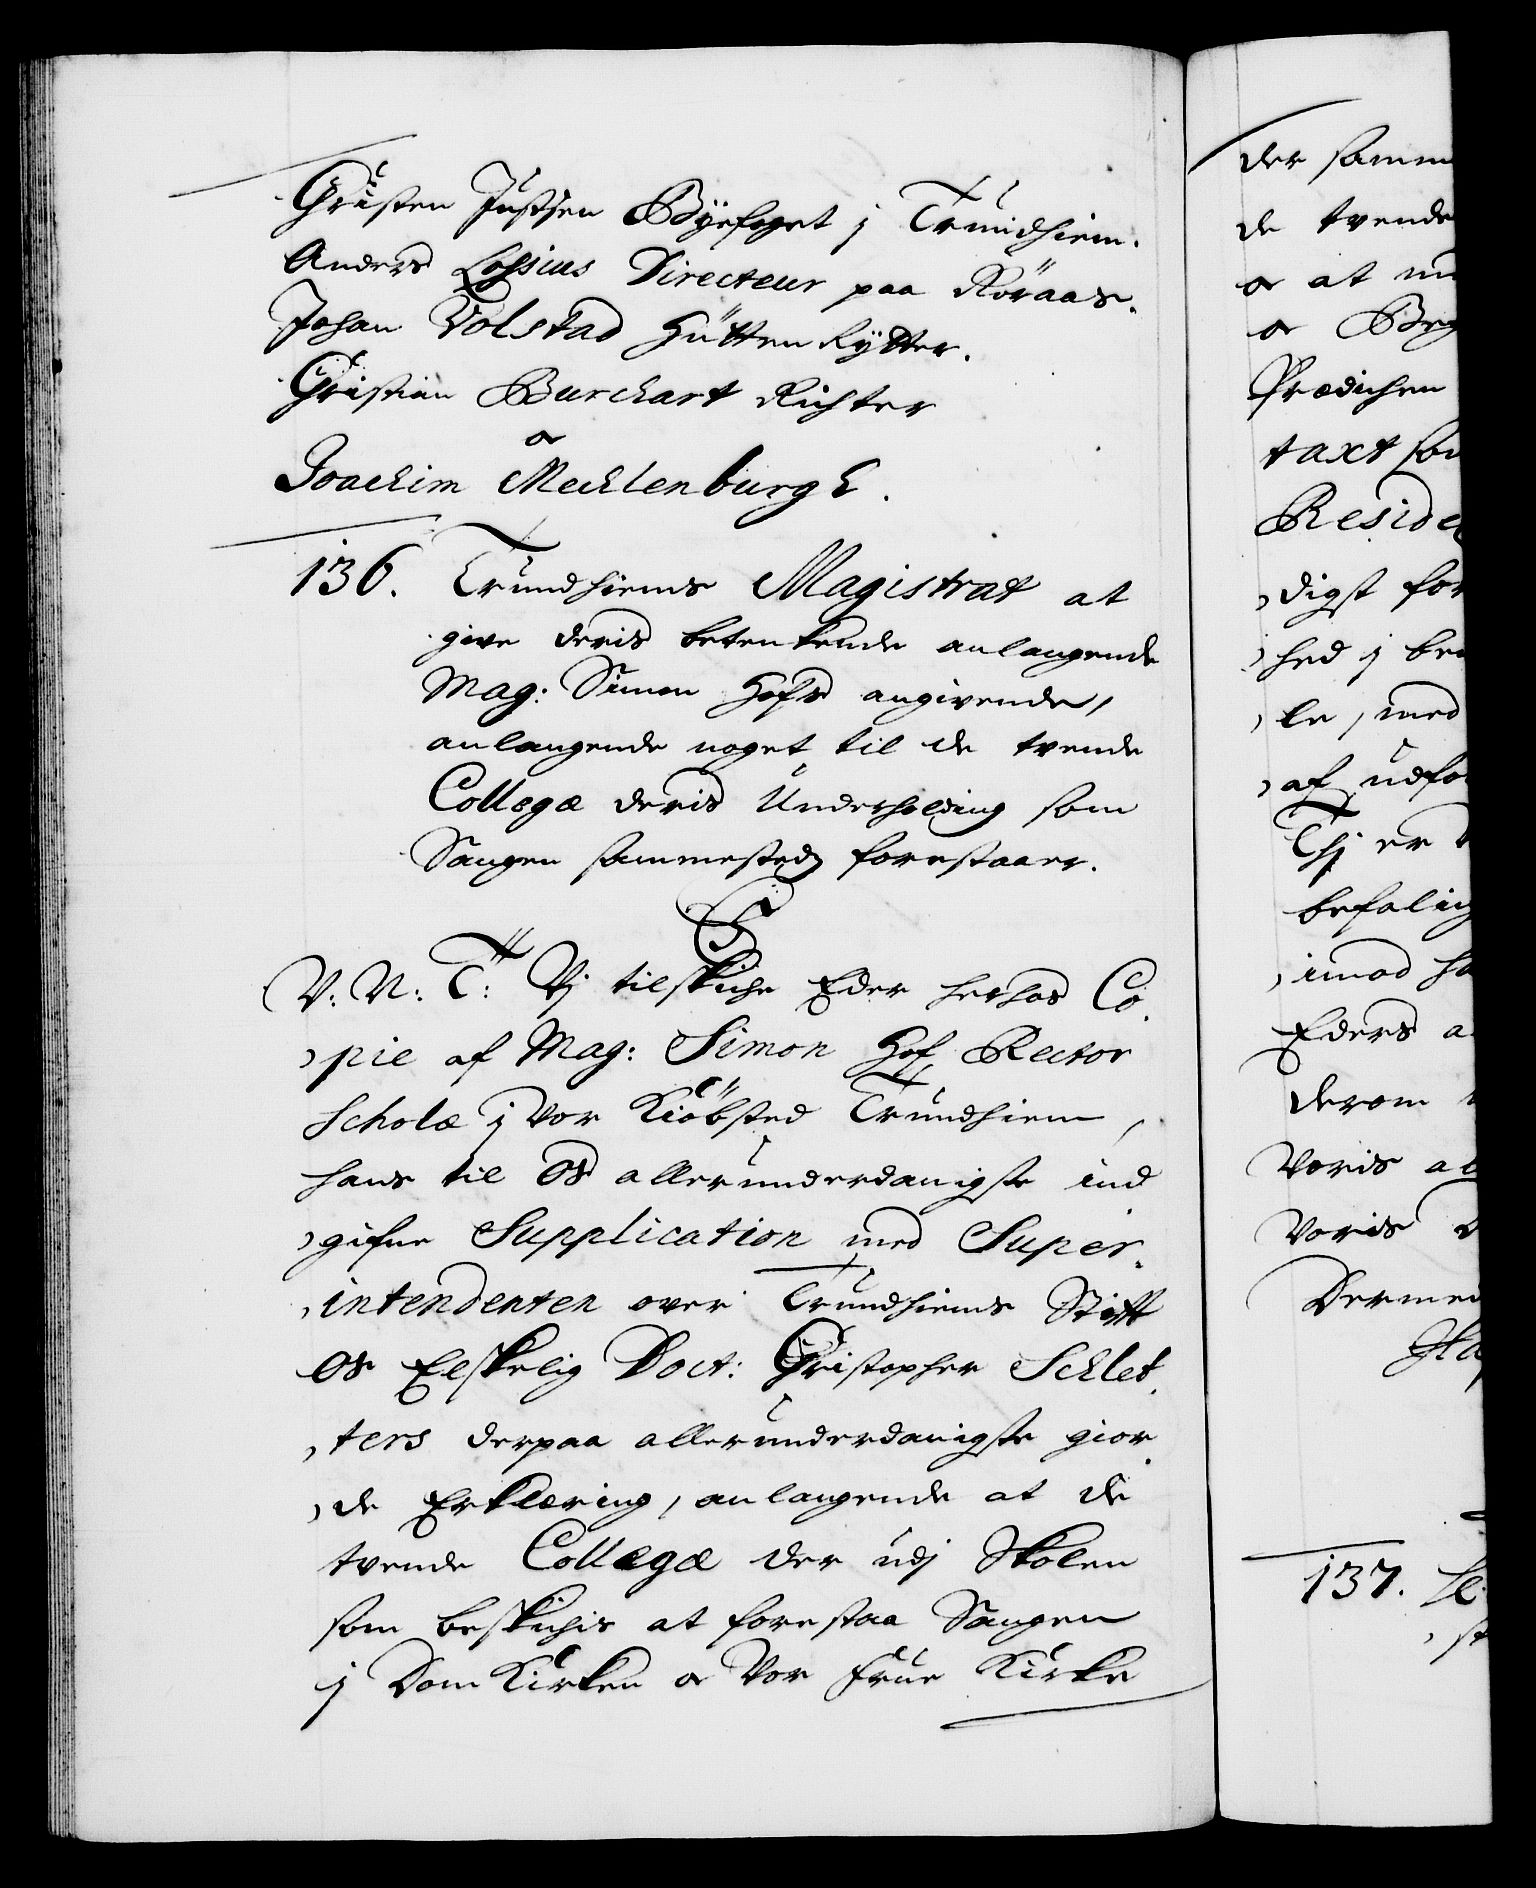 Christen Justsen Byefoget j Trundhiem.
Anders Lossius Directeur paa Röraas.
Johan Volstad Hütten Rytter.
Christian Burchart Richter
oc
Joachim Mechlenburgh.
136. Trundhiems Magistrat at
give deris betenkende anlangende
Mag: Simon Hofs angivende,
anlangende noget til de tvende
Collegæ deris Underholding som
Sangen sammesteds forestaaer.
C 5
V: N: T: Vj tilskiche Eder herhos Co-
pie af Mag: Simon Hof Rector
Scholæ j vor Kiöbsted Trundhiem,
hans til Os allerunderdanigste ind
gifne Supplication med Super-
intendenten over Trundhiems Stift
Os Elskelig Doct: Christopher Schlet-
ters derpaa allerunderdanigste gior-
de Erklæring, anlangende at de
tvende Collegæ der udj Skolen
som beskichis at forestaa Sangen
j Dom Kirken oc Vor Frue Kirke
der samme
de tvende
oc at
oc
Prædichen
taxt
digst for
hed j
le, med
af udfo
Thj er
befaling
imod
Eders a
derom
Voris al
Voris
Dermed
137.